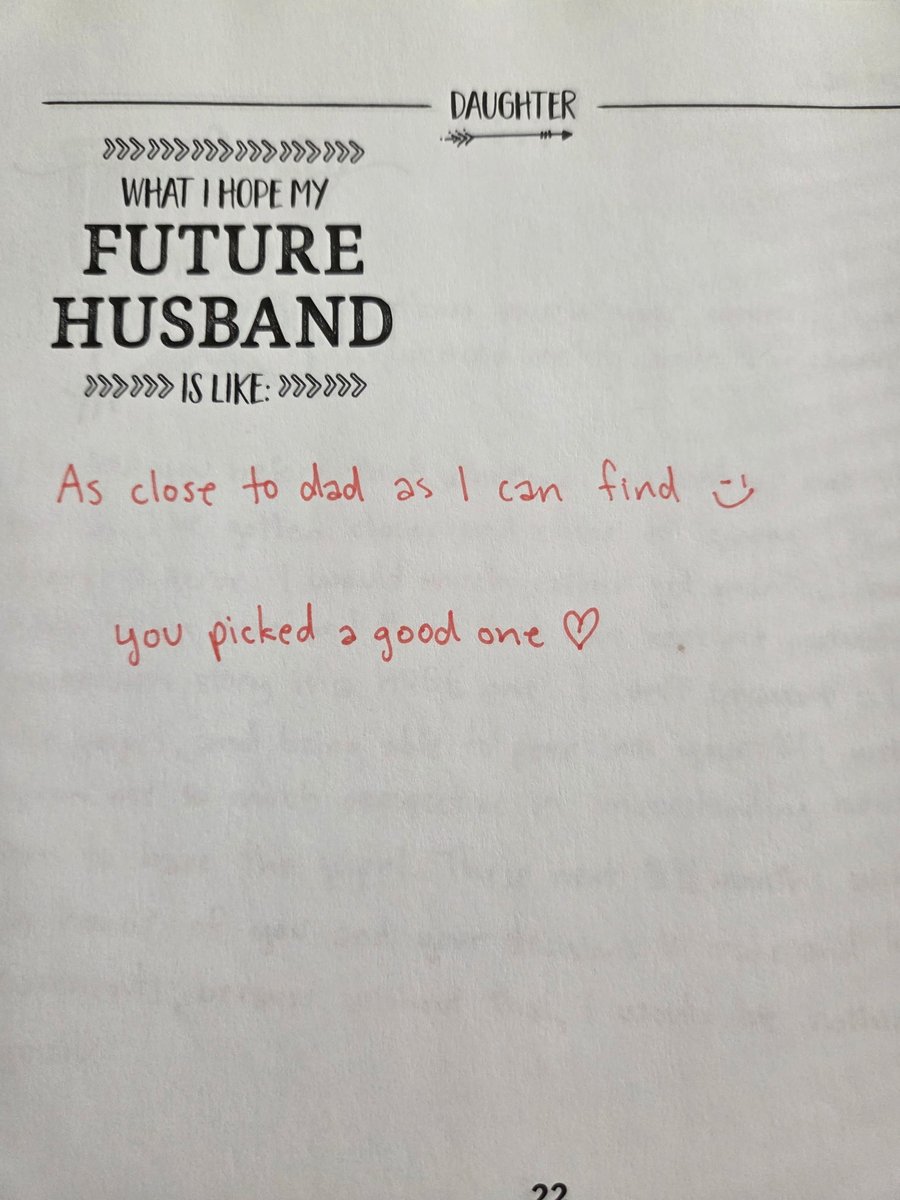 DAUGHTER
WHAT I HOPE MY
FUTURE
HUSBAND
IS LIKE:
As close to dad as I can find
you picked a good one
22